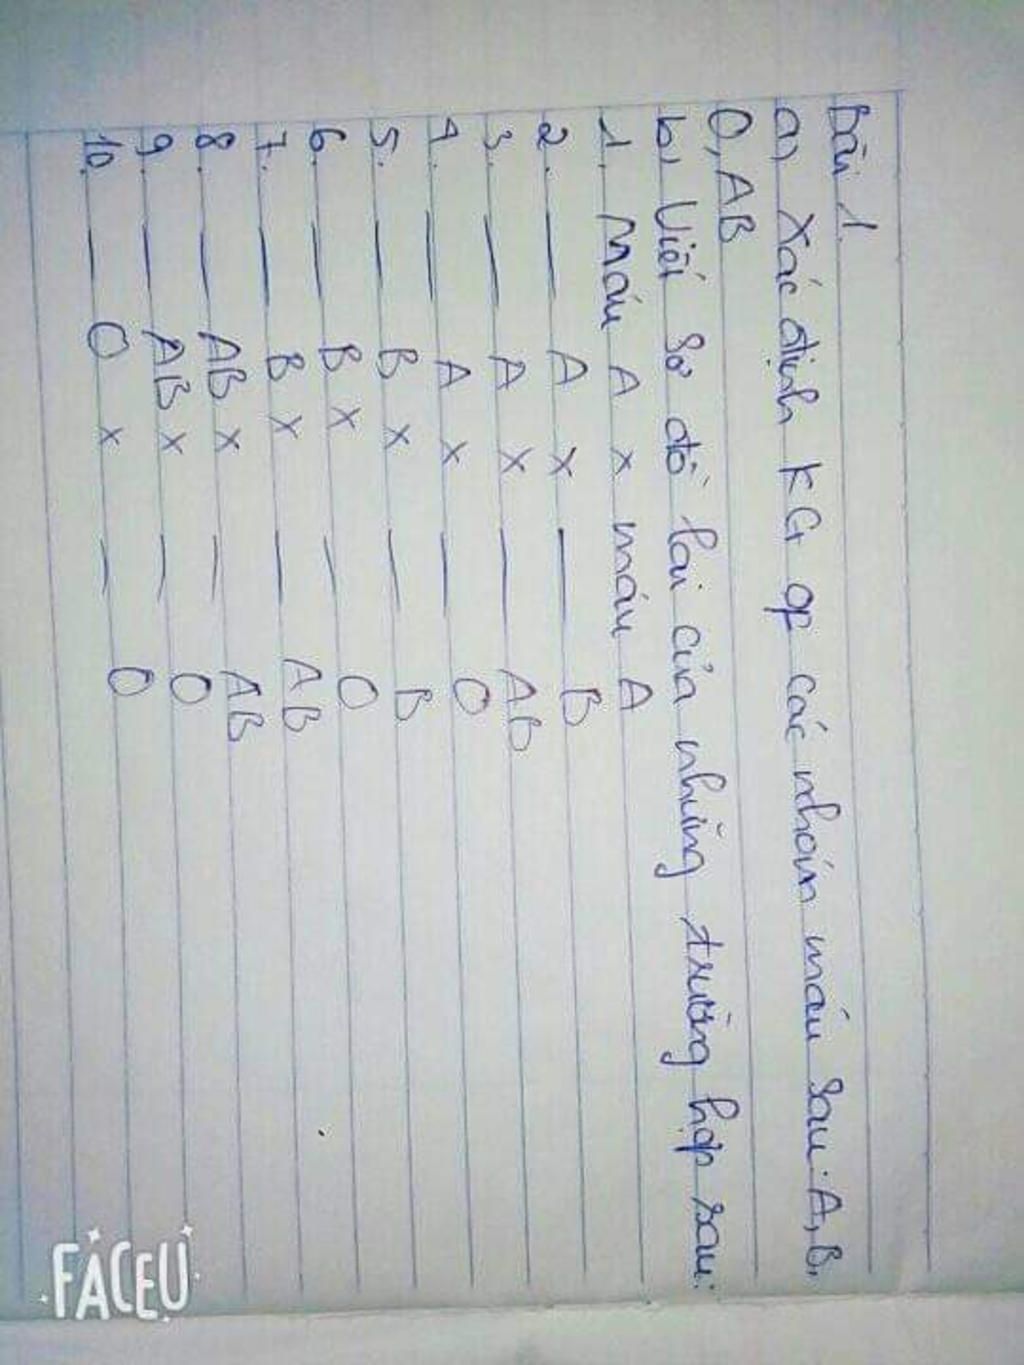 Bài 1.
a, Xác định KG of các nhóm máu sau: A, B,
O, AB
b, Viết sơ đồ lai của những trường hợp sau:
1. Máu A x máu A
2. — A x — B
3. — A x — AB
4. — A x — O
5. — B x — B
6. — B x — O
7. — B x — AB
8. — AB x — AB
9. — AB x — O
10. — O x — O
FACEU